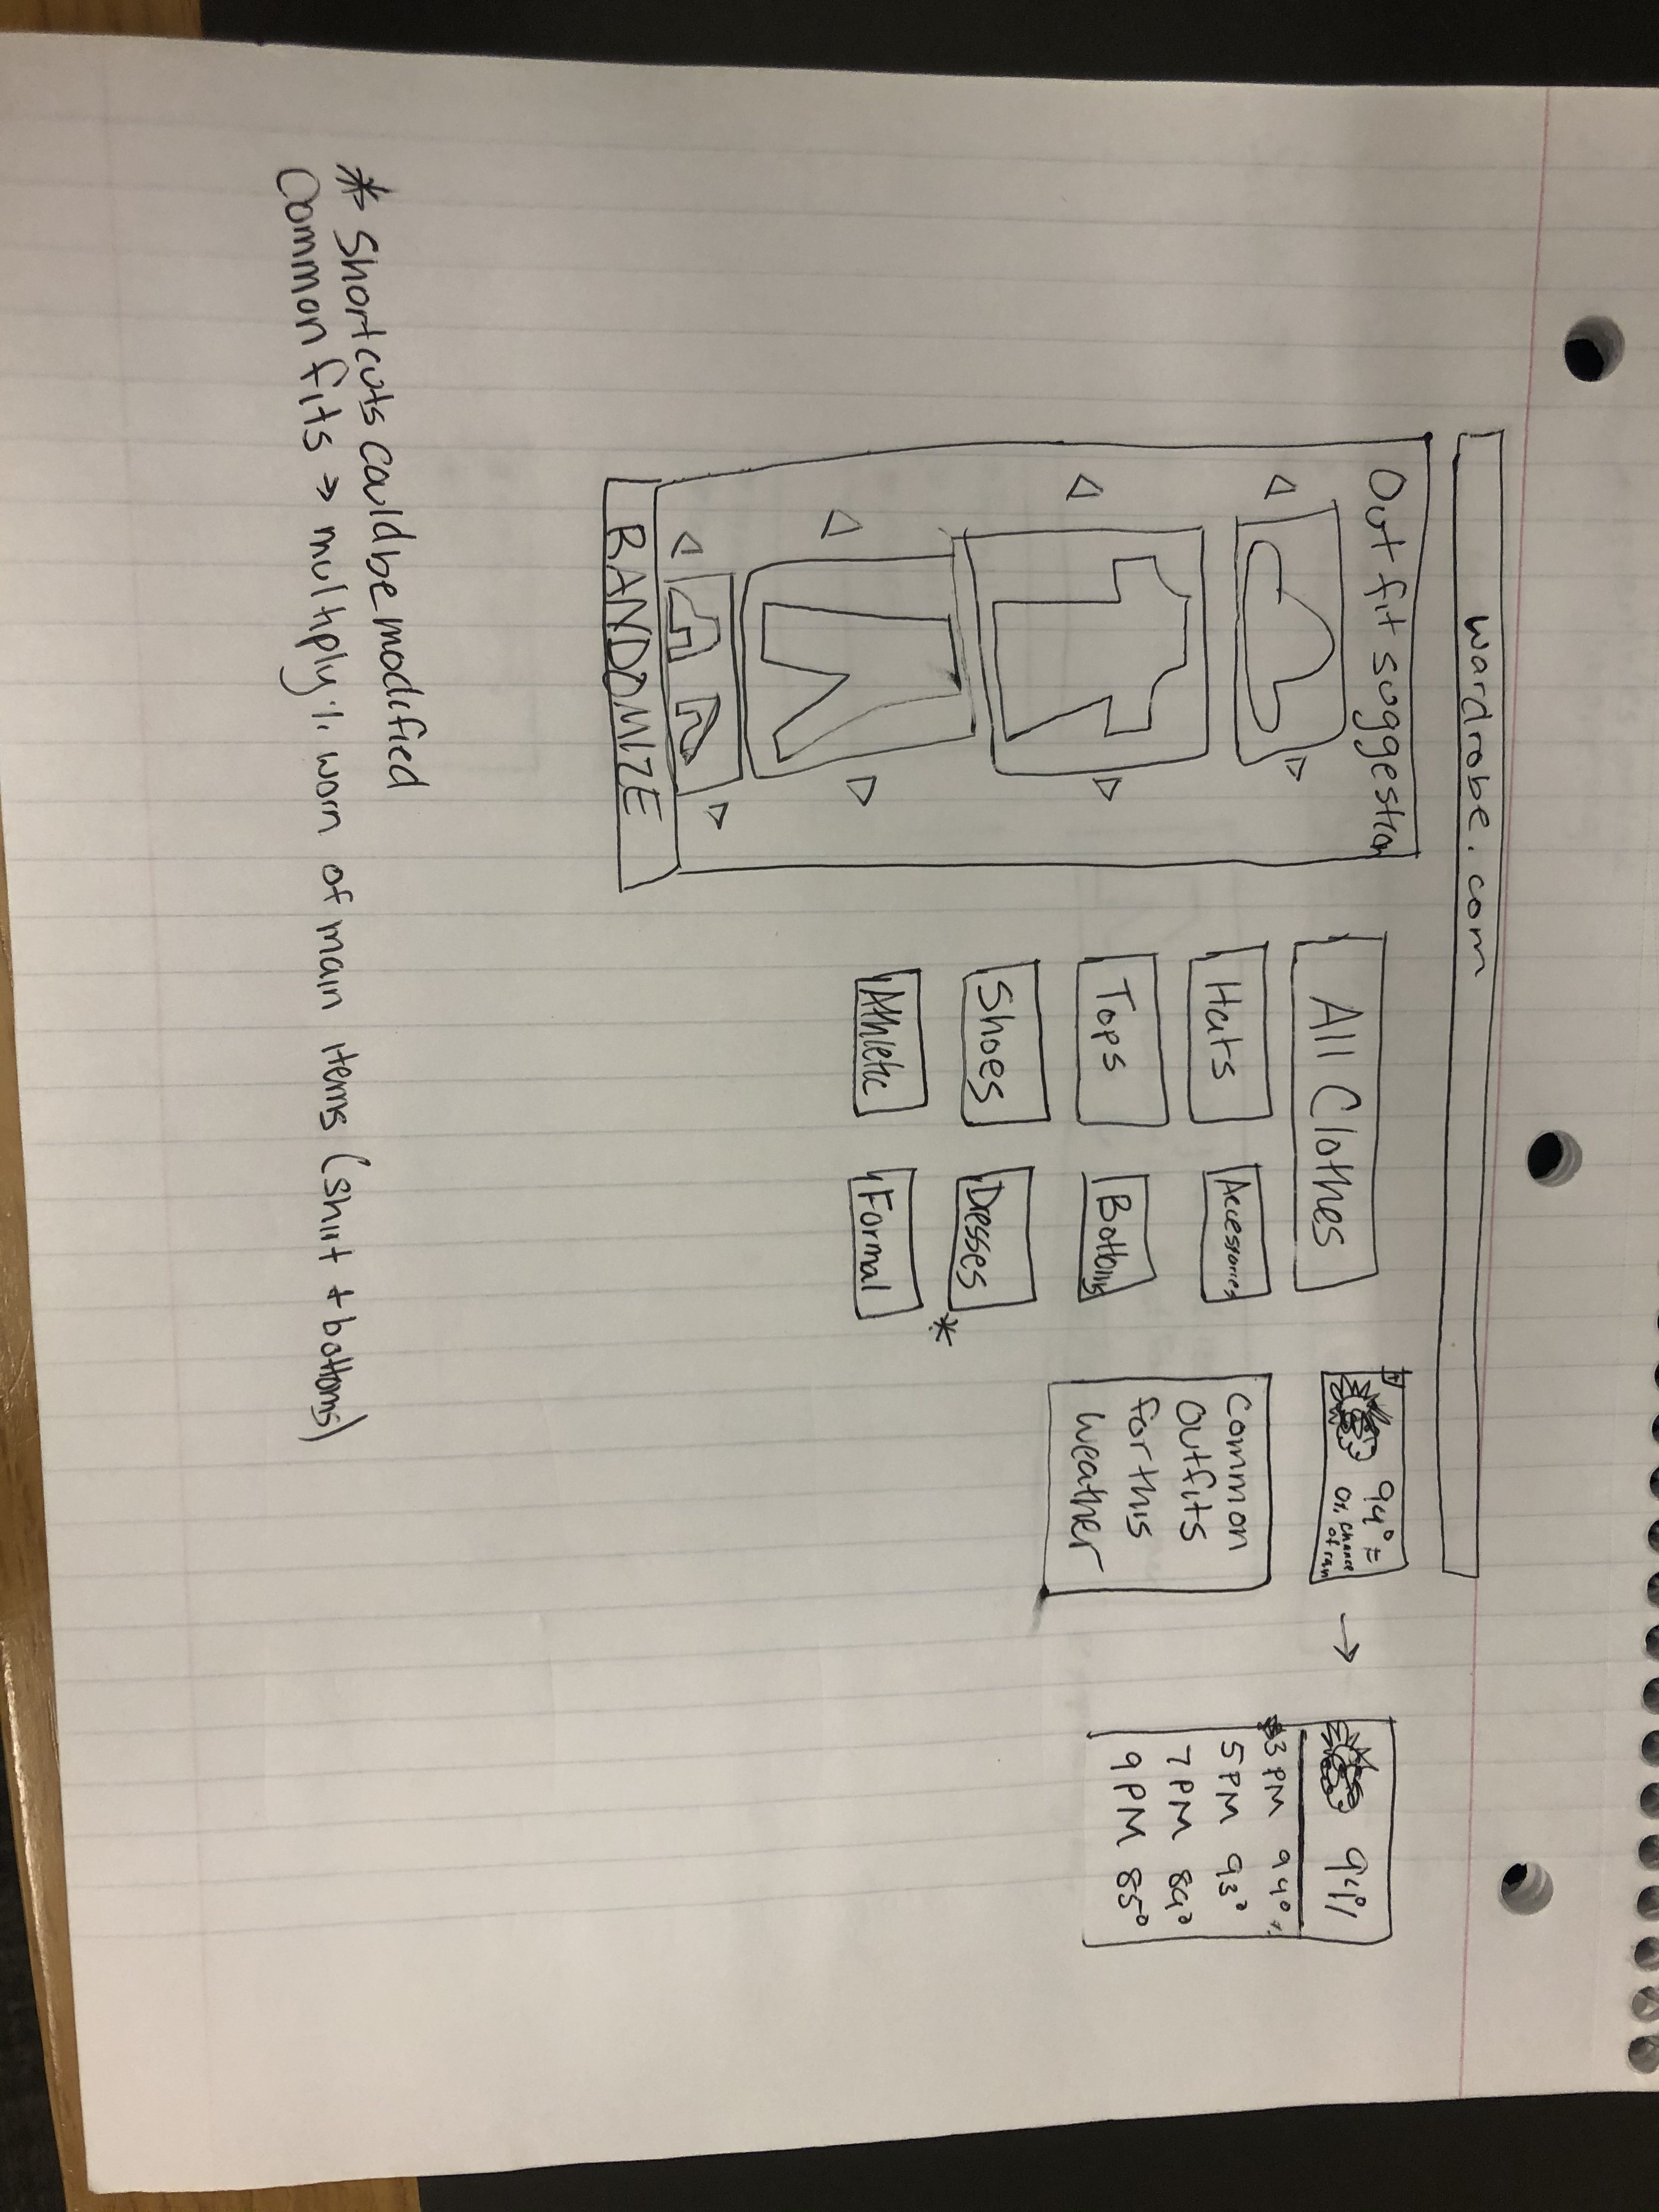 wardrobe.com
Outfit suggestion
RANDOMIZE
All Clothes
Hats
Accessories
Tops
Bottoms
Shoes
Dresses
*
Athletic
Formal
94°
0% chance
of rain
→
Common
Outfits
for this
weather
94°/
3 PM 94°
5 PM 93°
7 PM 89°
9 PM 85°
* Shortcuts could be modified
Common fits → multiply % worn of main items (shirt + bottoms)